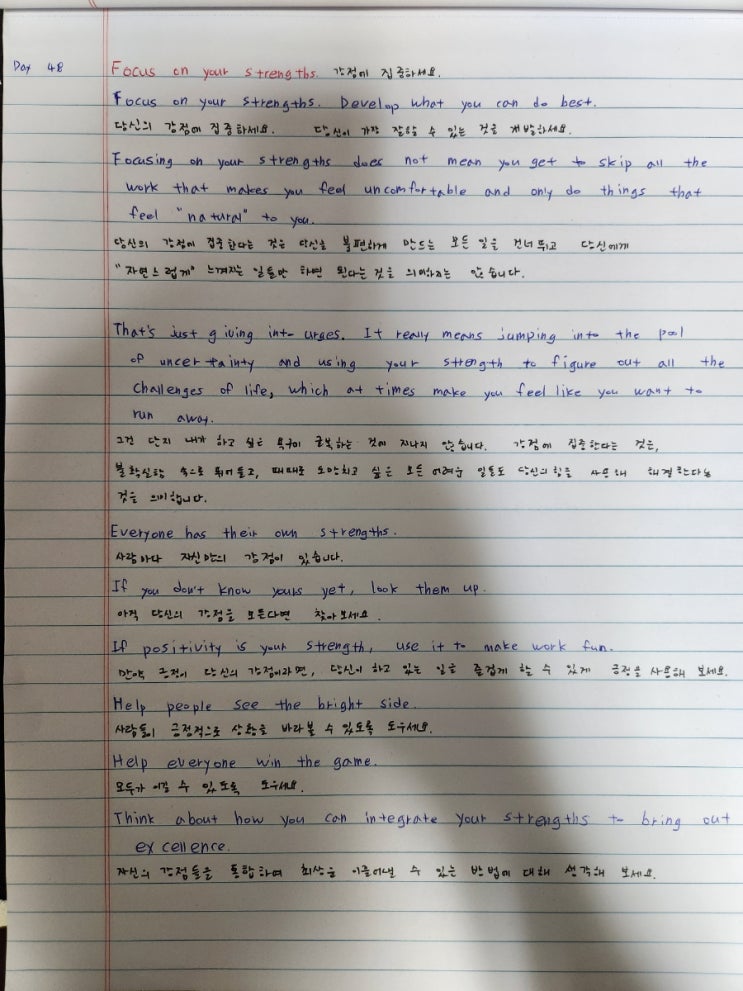 Day 48
Focus on your strengths. 강점에 집중하세요.
Focus on your strengths. Develop what you can do best.
당신의 강점에 집중하세요. 당신이 가장 잘할 수 있는 것을 개발하세요.
Focusing on your strengths does not mean you get to skip all the
work that makes you feel uncomfortable and only do things that
feel "natural" to you.
당신의 강점에 집중한다는 것은 당신을 불편하게 만드는 모든 일을 건너뛰고 당신에게
"자연스럽게" 느껴지는 일들만 하면 된다는 것을 의미하지는 않습니다.
That's just giving into urges. It really means jumping into the pool
of uncertainty and using your strength to figure out all the
challenges of life, which at times make you feel like you want to
run away.
그건 단지 내가 하고 싶은 욕구에 굴복하는 것에 지나지 않습니다. 강점에 집중한다는 것은,
불확실함 속으로 뛰어들고, 때때로 도망치고 싶은 모든 어려운 일들도 당신의 힘을 사용해 해결한다는
것을 의미합니다.
Everyone has their own strengths.
사람마다 자신만의 강점이 있습니다.
If you don't know yours yet, look them up.
아직 당신의 강점을 모른다면 찾아보세요.
If positivity is your strength, use it to make work fun.
만약 긍정이 당신의 강점이라면, 당신이 하고 있는 일을 즐겁게 할 수 있게 긍정을 사용해 보세요.
Help people see the bright side.
사람들이 긍정적으로 상황을 바라볼 수 있도록 도우세요.
Help everyone win the game.
모두가 이길 수 있도록 도우세요.
Think about how you can integrate your strengths to bring out
excellence.
자신의 강점들을 통합하여 최상을 이끌어낼 수 있는 방법에 대해 생각해 보세요.